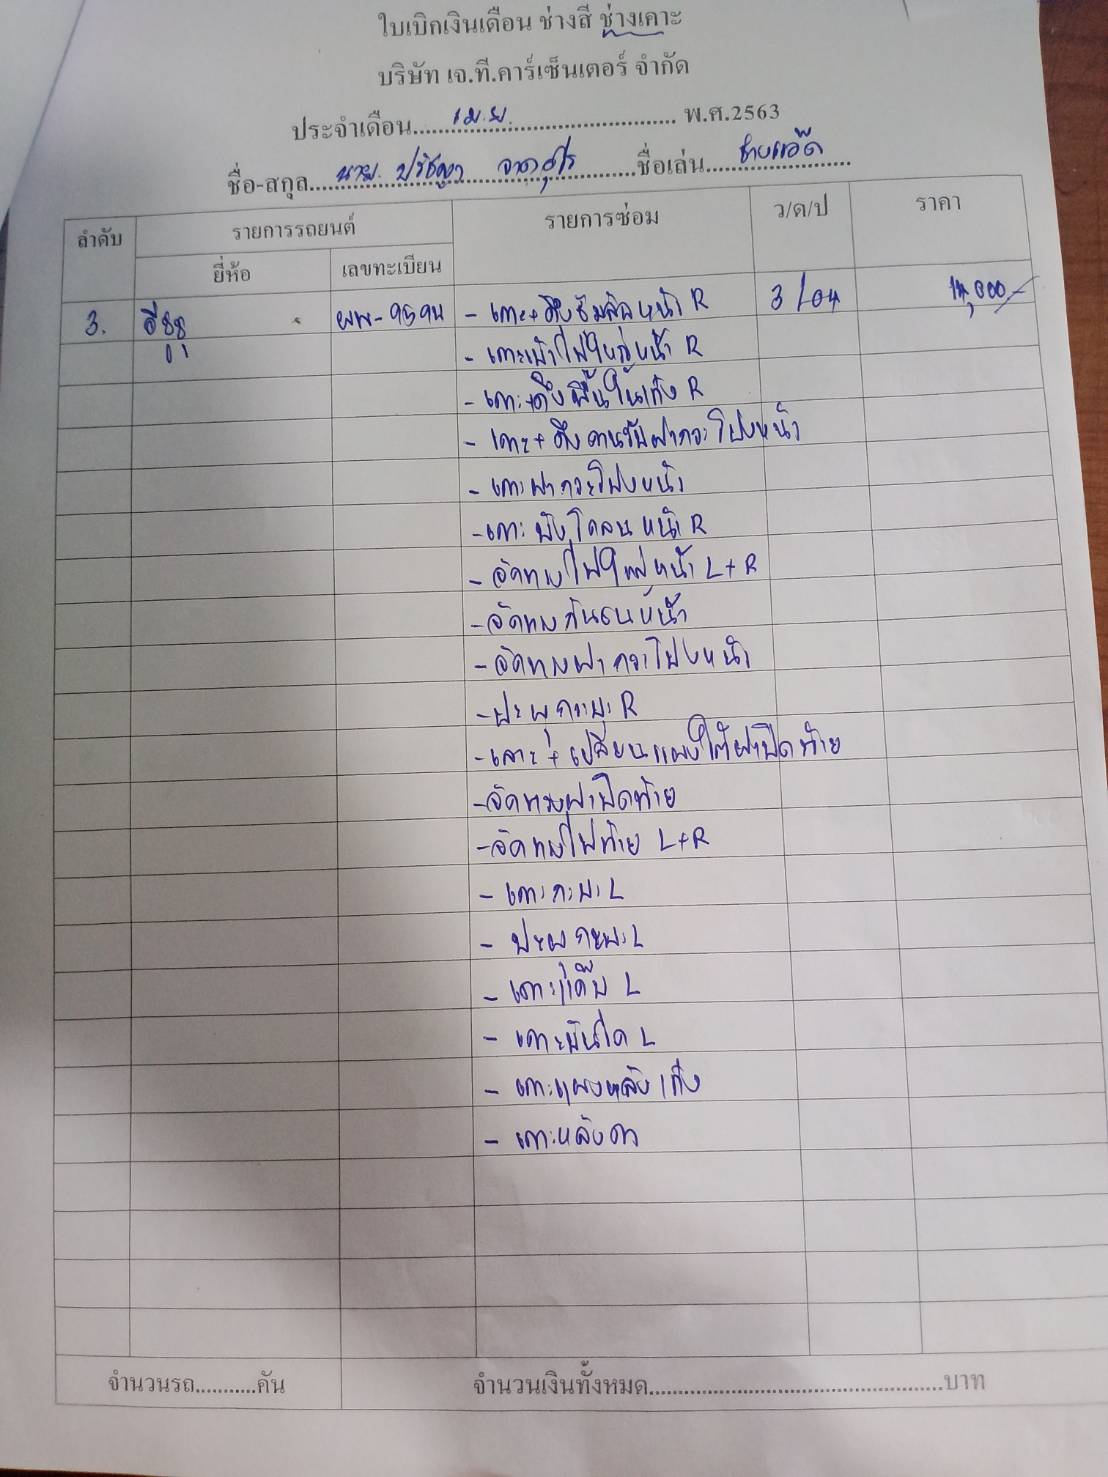 ใบเบิกเงินเดือน ช่างสี ช่างเคาะ
บริษัท เจ.ที.คาร์เซ็นเตอร์ จำกัด
ประจำเดือน..... เม.ย. ..... พ.ศ.2563
ชื่อ-สกุล..... นาย. ปรัชญา .....ชื่อเล่น..... ช่างแอ๊ด
ลำดับ รายการรถยนต์ รายการซ่อม ว/ด/ป ราคา
ยี่ห้อ เลขทะเบียน
3. อีซูซุ ผพ-9594 - เคาะ+ดึงซุ้มล้อหน้า R 3/04 ,000/-
- เคาะเบ้าไฟใหญ่หน้า R
- เคาะ+ดึงพื้นในเก๋ง R
- เคาะ+ดึงคานรับฝากระโปรงหน้า
- เคาะฝากระโปรงหน้า
- เคาะบังโคลนหน้า R
- จัดทรงไฟใหญ่หน้า L+R
- จัดทรงกันชนหน้า
- จัดทรงฝากระโปรงหน้า
- ปะผุกระบะ R
- เคาะ+เปลี่ยนแผงใต้ฝาปิดท้าย
- จัดทรงฝาปิดท้าย
- จัดทรงไฟท้าย L+R
- เคาะกะบะ L
- ปะผุกะบะ L
- เคาะแค๊ป L
- เคาะบันได L
- เคาะแผงหลังเก๋ง
- เคาะหลังคา
จำนวนรถ...........คัน จำนวนเงินทั้งหมด.............................................บาท